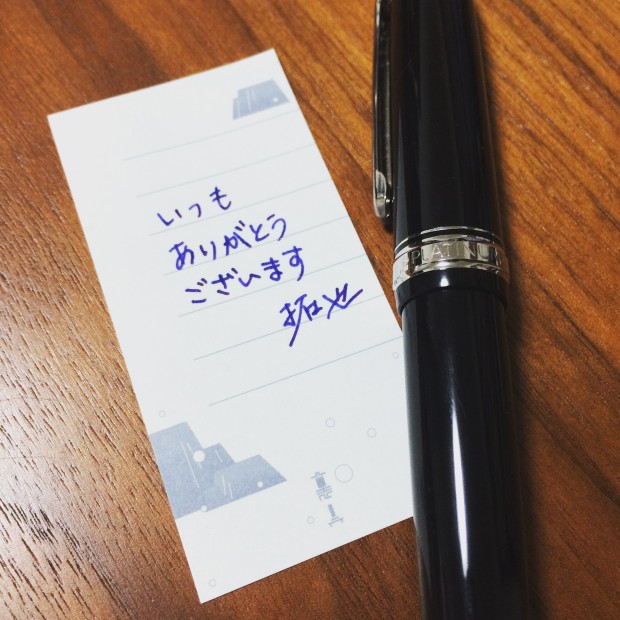 いつも
ありがとう
ございます
拓也
PLATIN